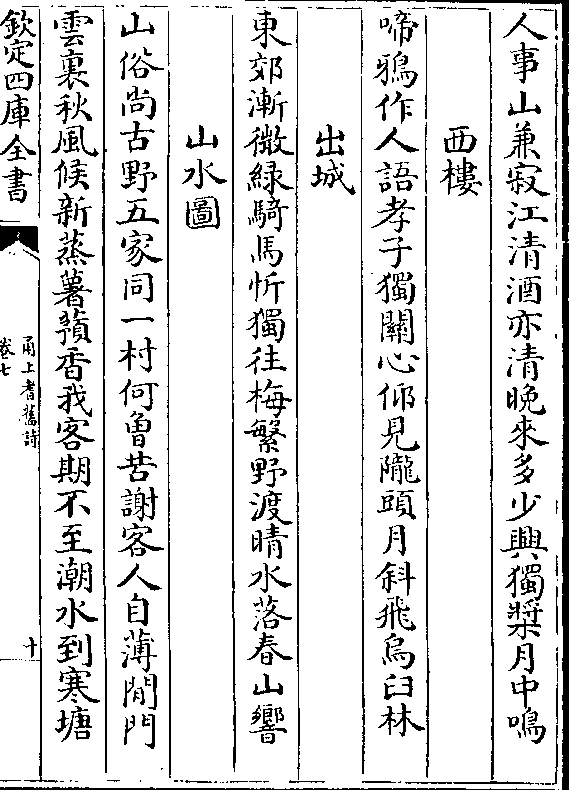 人事山兼寂江清酒亦清晚來多少興獨槳月中鳴
西樓
啼鴉作人語孝子獨關心仰見隴頭月斜飛烏臼林
出城
東郊漸微綠騎馬忻獨往梅繁野渡晴水落春山響
山水圖
山俗尚古野五家同一村何曾苦謝客人自薄閒門
雲裏秋風候新蒸薯蕷香我客期不至潮水到寒塘
欽定四庫全書
甬上耆舊詩
卷七
十